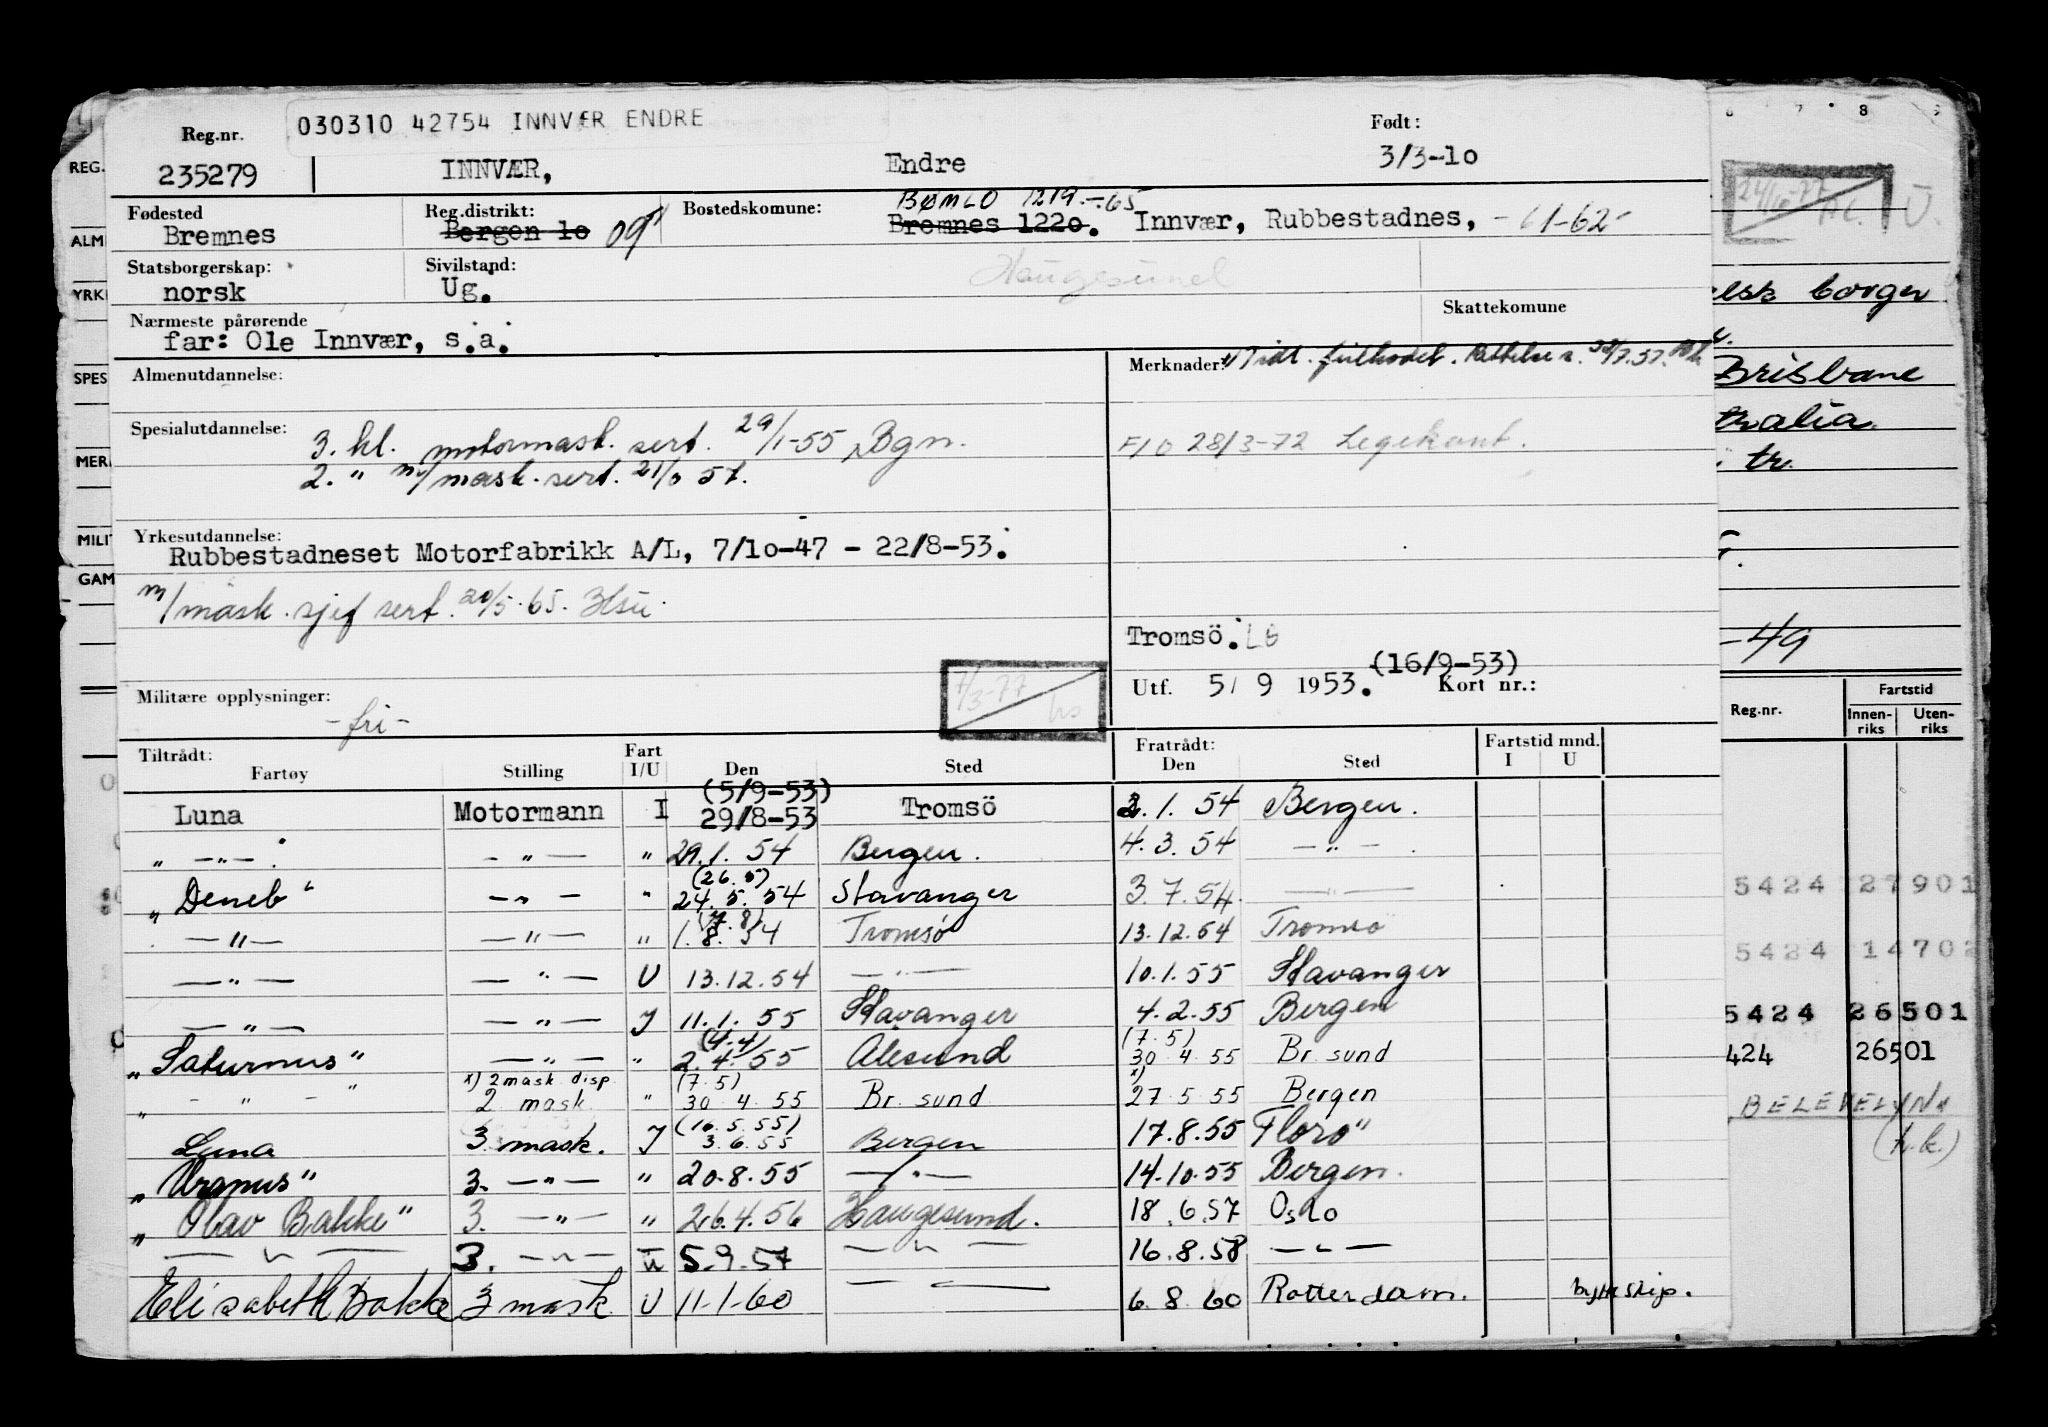 030310 42754 INNVÆR ENDRE
Reg.nr. Født:
235279 INNVÆR, Endre 3/3-10
BØMLO 1219.-65
Fødested Reg.distrikt: Bostedskomune:
Bremnes Bergen 10 09 Bremnes 1220. Innvær, Rubbestadnes, -61-62-
Statsborgerskap: Sivilstand: Haugesund
norsk Ug.
Nærmeste pårørende Skattekomune
far: Ole Innvær, s.a.
Almenutdannelse: Merknader:
Spesialutdannelse: 3. kl. motormask. sert. 29/1-55 Bgn.
F/O 28/3-72 Legekont.
2. " m/mask. sert. 57.
Yrkesutdannelse:
Rubbestadneset Motorfabrikk A/L, 7/10-47 - 22/8-53.
m/mask. sjef sert. 20/5.65. Hsu.
Tromsö.
(16/9-53)
Utf. 5/ 9 1953. Kort nr.:
Militære opplysninger:
-fri-
7/3-77
Tiltrådt: Fart Fratrådt: Fartstid mnd.
Fartøy Stilling I/U Den Sted Den Sted I U
(5/9-53)
Luna Motormann I 29/8-53 Tromsö 2.1.54 Bergen.
" -"- . - " - " 29.1.54 Bergen. 4.3.54 -"-
(26.5)
"Deneb" -"- " 24.5.54 Stavanger 3.7.54 -"-
-"- -"- " 1.8.54 Tromsø 13.12.54 Tromsø
-"- -"- U 13.12.54 -"- 10.1.55 Stavanger
-"- -"- I 11.1.55 Stavanger 4.2.55 Bergen
(4.4) (7.5)
"Saturnus" -"- " 2.4.55 Ålesund 30.4.55 Br. sund
x) 2 mask disp. (7.5) x)
" - " - " 2 mask. " 30.4.55 Br. sund 27.5.55 Bergen
(16.5.55)
Luna 3. mask. I 3.6.55 Bergen 17.8.55 Florø"
"Uranus" 3. -"- " 20.8.55 -"- 14.10.55 Bergen.
"Olav Bakke" 3. -"- " 26.4.56 Haugesund. 18.6.57 Oslo
-"- 3. -"- U 5.9.57 -"- 16.8.58 -"-
Elisabeth Bakke 3 mask. U 11-1-60 6.8.60 Rotterdam. bytte skip.
REG.
ALM
YRK
SPES
MER
MILIT
GAM
7 8 9
24/10-77
U.
borger
Brisbane
tr.
-49
Fartstid
Reg.nr. Innen-riks Uten-riks
5424 27901
5424 14702
5424 26501
424 26501
BELEVELYN
(h.k.)